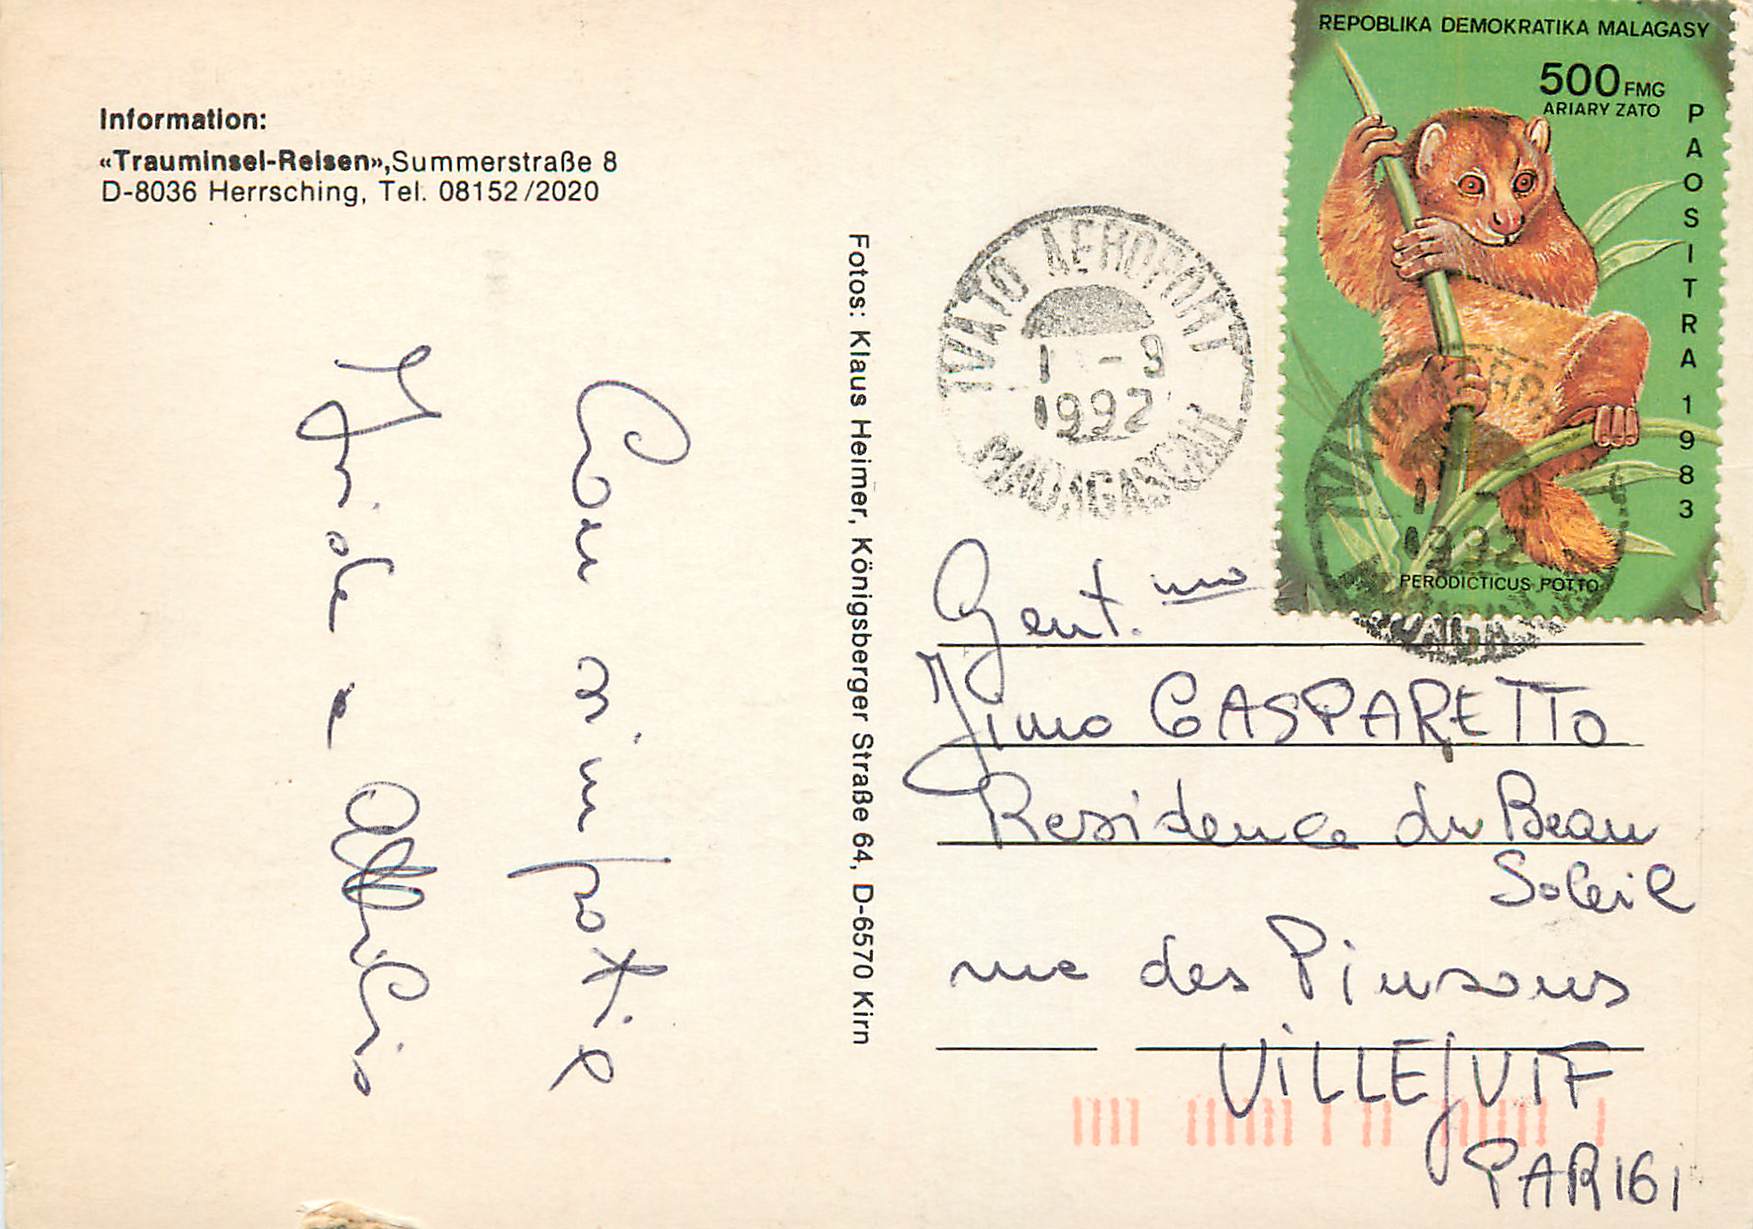 Information:
«Trauminsel-Reisen», Summerstraße 8
D-8036 Herrsching, Tel. 08152/2020
Con simpatia
Iride e
Fotos: Klaus Heimer, Königsberger Straße 64, D-6570 Kirn
IVATO AEROPORT
1 -9
1992
MADAGASCAR
REPOBLIKA DEMOKRATIKA MALAGASY
500 FMG
ARIARY ZATO
PAOSITRA 1983
PERODICTICUS POTTO
1 -9
1992
Gent.mo
GASPARETTO
Residence du Beau
Soleil
rue des Pinsons
VILLEJUIF
PARIGI